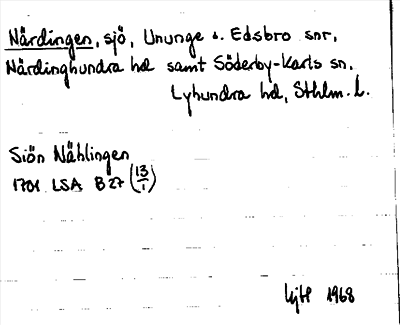 Närdingen, sjö, Ununge o. Edsbro snr,
Närdinghundra hd samt Söderby-Karls sn.
Lyhundra hd, Sthlm. L.
Siön Nählingen
1701 LSA B 27 (13/1)
1968